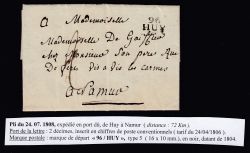 a
Mademoiselle
Mademoiselle De
chez Monsieur son pere Rue
de vis a vis les carmes
a Namur
96
HUY
Pli du 24. 07. 1808, expédié en port dû, de Huy à Namur ( distance : 72 Km).
Port de la lettre : 2 décimes, inscrit en chiffres de poste conventionnels ( tarif du 24/04/1806 ).
Marque postale : marque de départ « 96 / HUY », type 5 ( 16 x 10 mm ), en noir, datant de 1804.